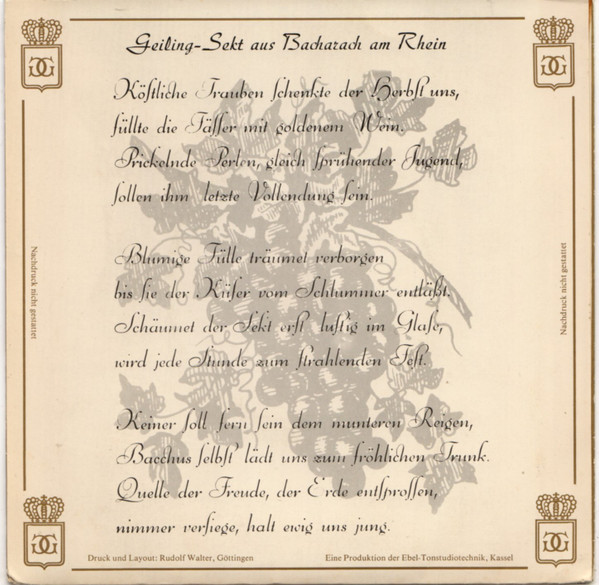 Geiling-Sekt aus Bacharach am Rhein
Köſtliche Trauben ſchenkte der Herbſt uns,
füllte die Fäſſer mit goldenem Wein.
Prickelnde Perlen, gleich ſprühender Jugend,
ſollen ihm letzte Vollendung ſein.
Blumige Fülle träumet verborgen
bis ſie der Küfer vom Schlummer entläßt.
Schäumet der Sekt erſt luſtig im Glaſe,
wird jede Stunde zum ſtrahlenden Feſt.
Keiner ſoll fern ſein dem munteren Reigen,
Bacchus ſelbſt lädt uns zum fröhlichen Trunk.
Quelle der Freude, der Erde entſproſſen,
nimmer verſiege, halt ewig uns jung.
Nachdruck nicht gestattet
Nachdruck nicht gestattet
Druck und Layout: Rudolf Walter, Göttingen
Eine Produktion der Ebel-Tonstudiotechnik, Kassel
GG
GG
GG
GG